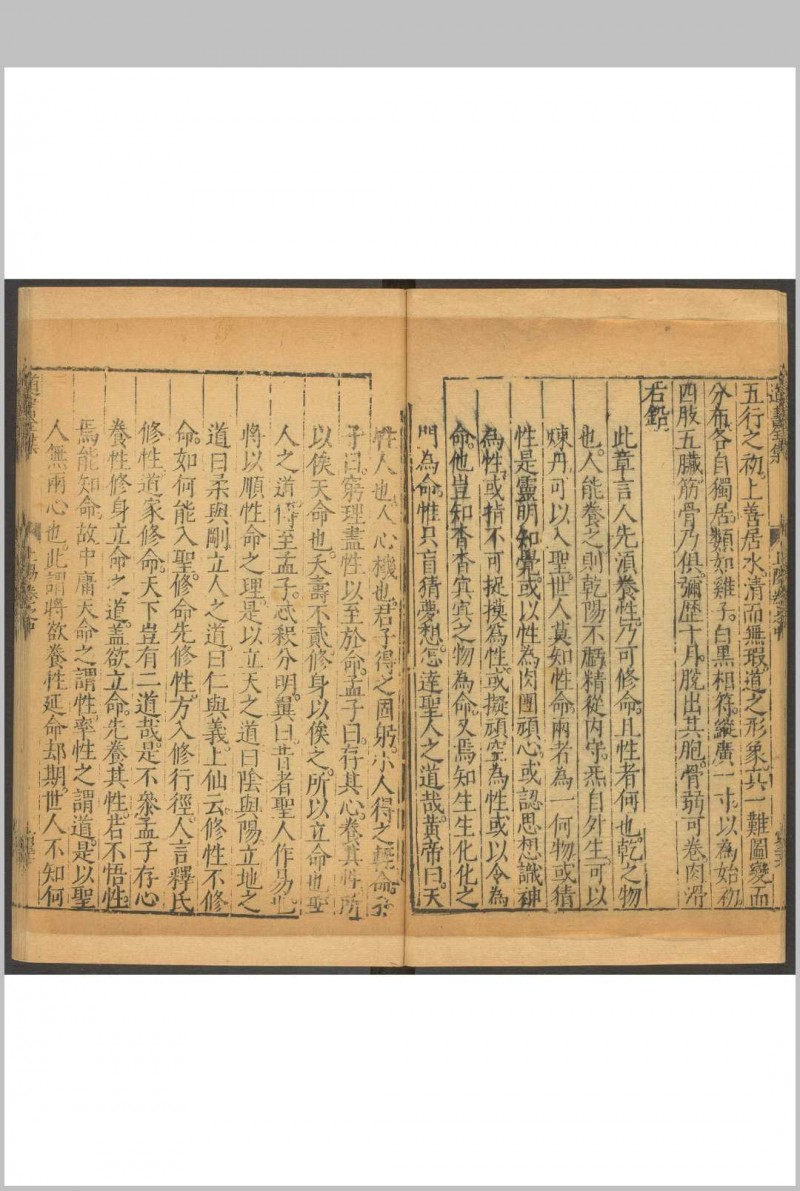 五行之初上善居水清而無瑕道之形象真一難圖變而
分布各自獨居類如雞子白黑相符縱廣一寸以為始初
四肢五臟筋骨乃俱彌歷十月脫出其胞骨弱可卷肉滑
若鉛
此章言人先須養性乃可修命且性者何也乾之物
也人能養之則乾陽不虧精從內守炁自外生可以
煉丹可以入聖世人莫知性命兩者為一何物或猜
性是靈明知覺或以性為肉團頑心或認思想識神
為性或指不可捉摸為性或擬頑空為性或以令為
命他豈知杳杳冥冥之物為命又焉知生生化化之
門為命性只盲猜夢想怎達聖人之道哉黃帝曰天
性人也人心機也君子得之固躬小人得之輕命孔
子曰窮理盡性以至於命孟子曰存其心養其性所
以俟天命也夭壽不貳修身以俟之所以立命也聖
人之道傳至孟子忒殺分明翼曰昔者聖人作易也
將以順性命之理是以立天之道曰陰與陽立地之
道曰柔與剛立人之道曰仁與義上仙云修性不修
命如何能入聖修命先修性方入修行徑人言釋氏
修性道家修命天下豈有二道哉是不參孟子存心
養性修身立命之道蓋欲立命先養其性若不悟性
焉能知命故中庸天命之謂性率性之謂道是以聖
人無兩心也此謂將欲養性延命却期世人不知何